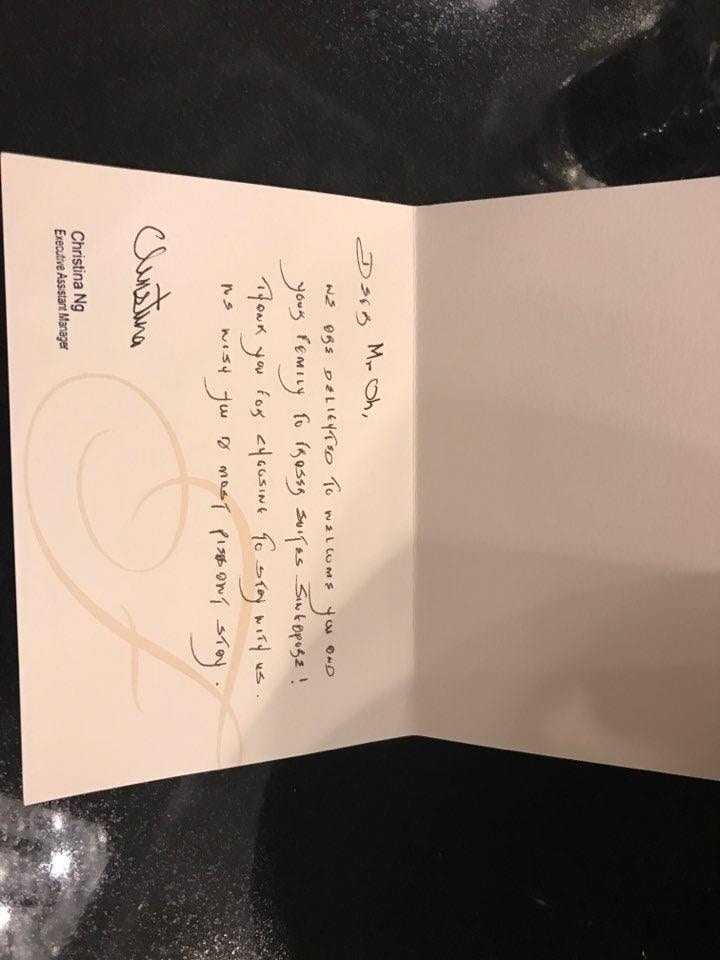 Dear Mr Oh,
We are delighted to welcome you and
your family to Fraser Suites Singapore!
Thank you for choosing to stay with us.
We wish you a most pleasant stay.
Christina
Christina Ng
Executive Assistant Manager